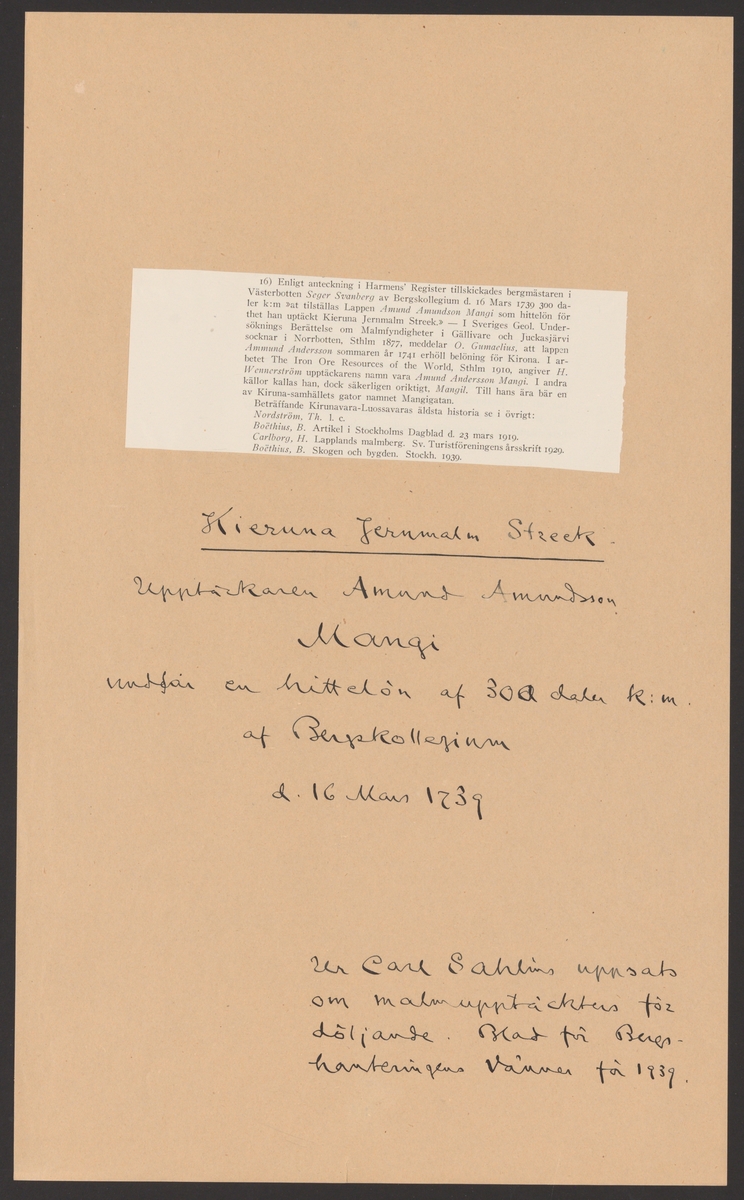 16) Enligt anteckning i Harmens' Register tillskickades bergmästaren i
Västerbotten Seger Svanberg av Bergskollegium d. 16 Mars 1739 300 da-
ler k:m »at tilställas Lappen Amund Amundson Mangi som hittelön för
thet han uptäckt Kieruna Jernmalm Streek.» — I Sveriges Geol. Under-
söknings Berättelse om Malmfyndigheter i Gällivare och Juckasjärvi
socknar i Norrbotten, Sthlm 1877, meddelar O. Gumaelius, att lappen
Ammund Andersson sommaren år 1741 erhöll belöning för Kirona. I ar-
betet The Iron Ore Resources of the World, Sthlm 1910, angiver H.
Wennerström upptäckarens namn vara Amund Andersson Mangi. I andra
källor kallas han, dock säkerligen oriktigt, Mangil. Till hans ära bär en
av Kiruna-samhällets gator namnet Mangigatan.
Beträffande Kirunavara-Luossavaras äldsta historia se i övrigt:
Nordström, Th. l. c.
Boëthius, B. Artikel i Stockholms Dagblad d. 23 mars 1919.
Carlborg, H. Lapplands malmberg. Sv. Turistföreningens årsskrift 1929.
Boëthius, B. Skogen och bygden. Stockh. 1939.
Kieruna Jernmalm Streek.
Upptäckaren Amund Amundsson
Mangi
undfår en hittelön af 300 daler k:m.
af Bergskollegium
d. 16 Mars 1739
Ur Carl Sahlins uppsats
om malmupptäckters för
döljande. Blad för Bergs-
hanteringens Vänner för 1939.